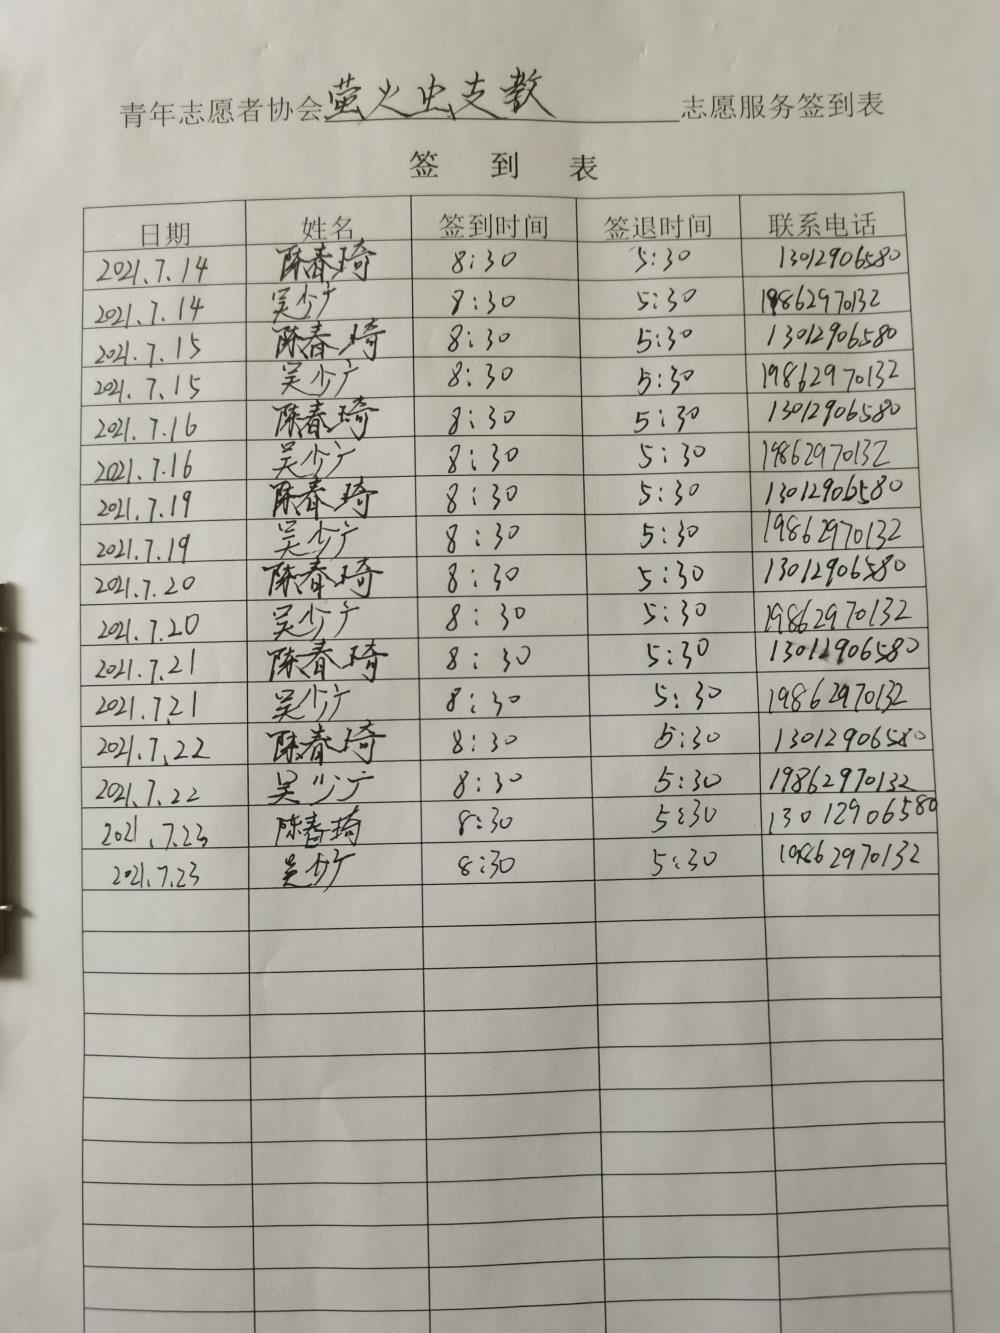 青年志愿者协会萤火虫支教志愿服务签到表
签 到 表
日期 姓名 签到时间 签退时间 联系电话
2021.7.14 陈春琦 8:30 5:30 13012906580
2021.7.14 吴少广 8:30 5:30 19862970132
2021.7.15 陈春琦 8:30 5:30 13012906580
2021.7.15 吴少广 8:30 5:30 19862970132
2021.7.16 陈春琦 8:30 5:30 13012906580
2021.7.16 吴少广 8:30 5:30 19862970132
2021.7.19 陈春琦 8:30 5:30 13012906580
2021.7.19 吴少广 8:30 5:30 19862970132
2021.7.20 陈春琦 8:30 5:30 13012906580
2021.7.20 吴少广 8:30 5:30 19862970132
2021.7.21 陈春琦 8:30 5:30 13012906580
2021.7.21 吴少广 8:30 5:30 19862970132
2021.7.22 陈春琦 8:30 5:30 13012906580
2021.7.22 吴少广 8:30 5:30 19862970132
2021.7.23 陈春琦 8:30 5:30 13012906580
2021.7.23 吴少广 8:30 5:30 19862970132